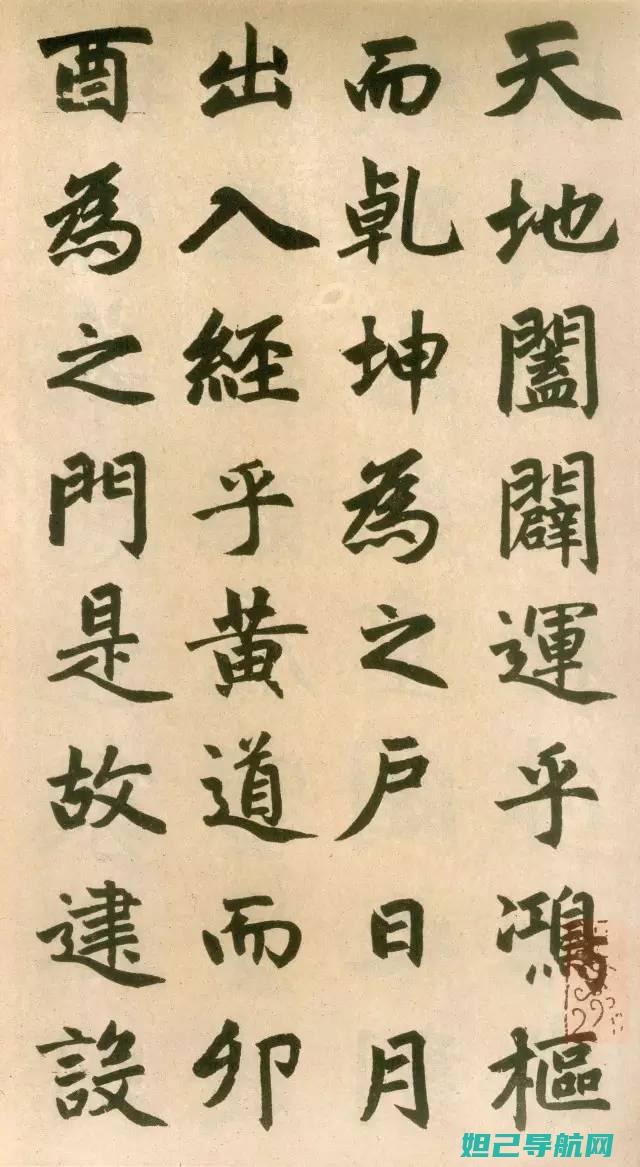 天地闔闢運乎鴻樞
而乹坤為之户日月
出入經乎黄道而卯
酉為之門是故建設
妲己导航网